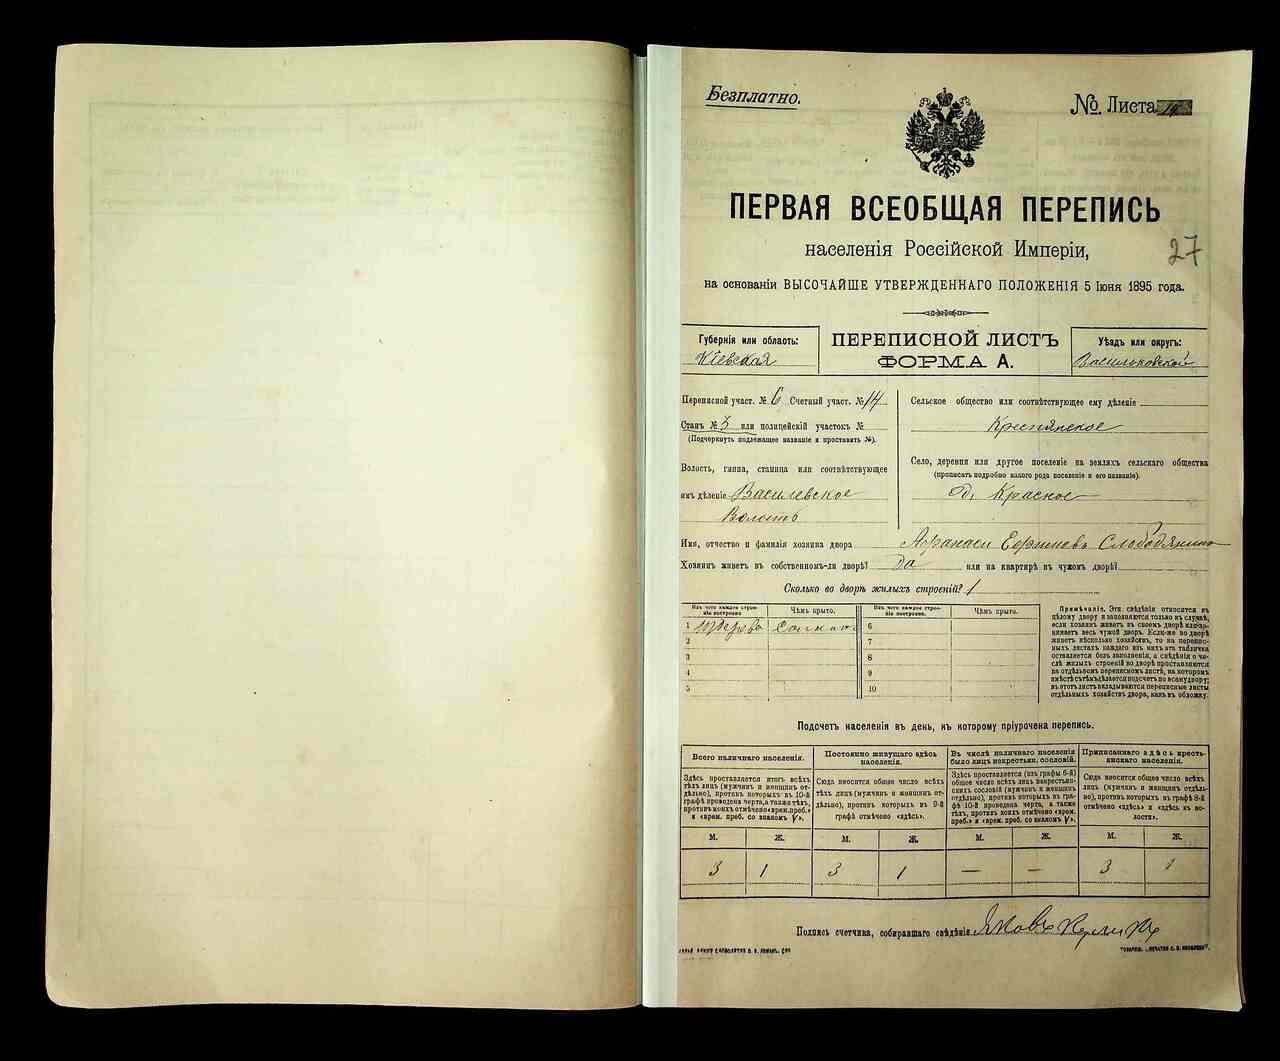 Безплатно.
№ Листа
ПЕРВАЯ ВСЕОБЩАЯ ПЕРЕПИСЬ
населенія Россійской Имперіи,
27
на основаніи ВЫСОЧАЙШЕ УТВЕРЖДЕННАГО ПОЛОЖЕНІЯ 5 Іюня 1895 года.
Губернія или область:
Кіевская
ПЕРЕПИСНОЙ ЛИСТЪ
ФОРМА А.
Уѣздъ или округъ:
Васильковской
Переписной участ. № 6 Счетный участ. № 14
Станъ № 3 или полицейскій участокъ №
(Подчеркнуть подлежащее названіе и проставить №).
Волость, гмина, станица или соотвѣтствующее
имъ дѣленіе Василевское
Волость
Сельское общество или соотвѣтствующее ему дѣленіе
Крестянское
Село, деревня или другое поселеніе на земляхъ сельскаго общества
(прописать подробно какого рода поселеніе и его названіе).
д. Красное
Имя, отчество и фамилія хозяина двора Афанаси Ефимевъ
Хозяинъ живетъ въ собственномъ-ли дворѣ? Да или на квартирѣ въ чужомъ дворѣ?
Сколько во дворѣ жилыхъ строеній? 1
Изъ чего каждое строеніе построено.
Чѣмъ крыто.
Изъ чего каждое строеніе построено.
Чѣмъ крыто.
1
2
3
4
5
6
7
8
9
10
Примѣчаніе. Эти свѣдѣнія относятся къ
цѣлому двору и заполняются только въ случаѣ,
если хозяинъ живетъ въ своемъ дворѣ или занимаетъ
весь чужой дворъ. Если-же во дворѣ
живетъ нѣсколько хозяйствъ, то на переписныхъ
листахъ каждаго изъ нихъ эта табличка
оставляется безъ заполненія, а свѣдѣнія о числѣ
жилыхъ строеній во дворѣ проставляются
на отдѣльномъ переписномъ листѣ, на которомъ
вмѣстѣ съ тѣмъ дѣлается подсчетъ по всему двору;
въ этотъ листъ вкладываются переписные листы
отдѣльныхъ хозяйствъ двора, какъ въ обложку.
Подсчетъ населенія въ день, къ которому пріурочена перепись.
Всего наличнаго населенія.
Здѣсь проставляется итогъ всѣхъ
тѣхъ лицъ (мужчинъ и женщинъ отдѣльно),
противъ которыхъ въ 10-й
графѣ проведена черта, а также тѣхъ,
противъ коихъ отмѣчено «врем. преб.»
и «врем. преб. со знакомъ V».
Постоянно живущаго здѣсь
населенія.
Сюда вносится общее число всѣхъ
тѣхъ лицъ (мужчинъ и женщинъ отдѣльно),
противъ которыхъ въ 9-й
графѣ отмѣчено «здѣсь».
Въ числѣ наличнаго населенія
было лицъ некрестьян. сословій.
Здѣсь проставляется (изъ графы 6-й)
общее число всѣхъ лицъ некрестьянскихъ
сословій (мужчинъ и женщинъ
отдѣльно), противъ которыхъ въ графѣ
10-й проведена черта, а также
тѣхъ, противъ коихъ отмѣчено «врем.
преб.» и «врем. преб. со знакомъ V».
Приписаннаго здѣсь крестьянскаго
населенія.
Сюда вносится общее число всѣхъ
лицъ (мужчинъ и женщинъ отдѣльно),
противъ которыхъ въ графѣ 8-й
отмѣчено «здѣсь» и «здѣсь въ волости».
М. Ж. М. Ж. М. Ж. М. Ж.
3 1 3 1 — — 3 1
Подпись счетчика, собиравшаго свѣдѣнія Яковъ